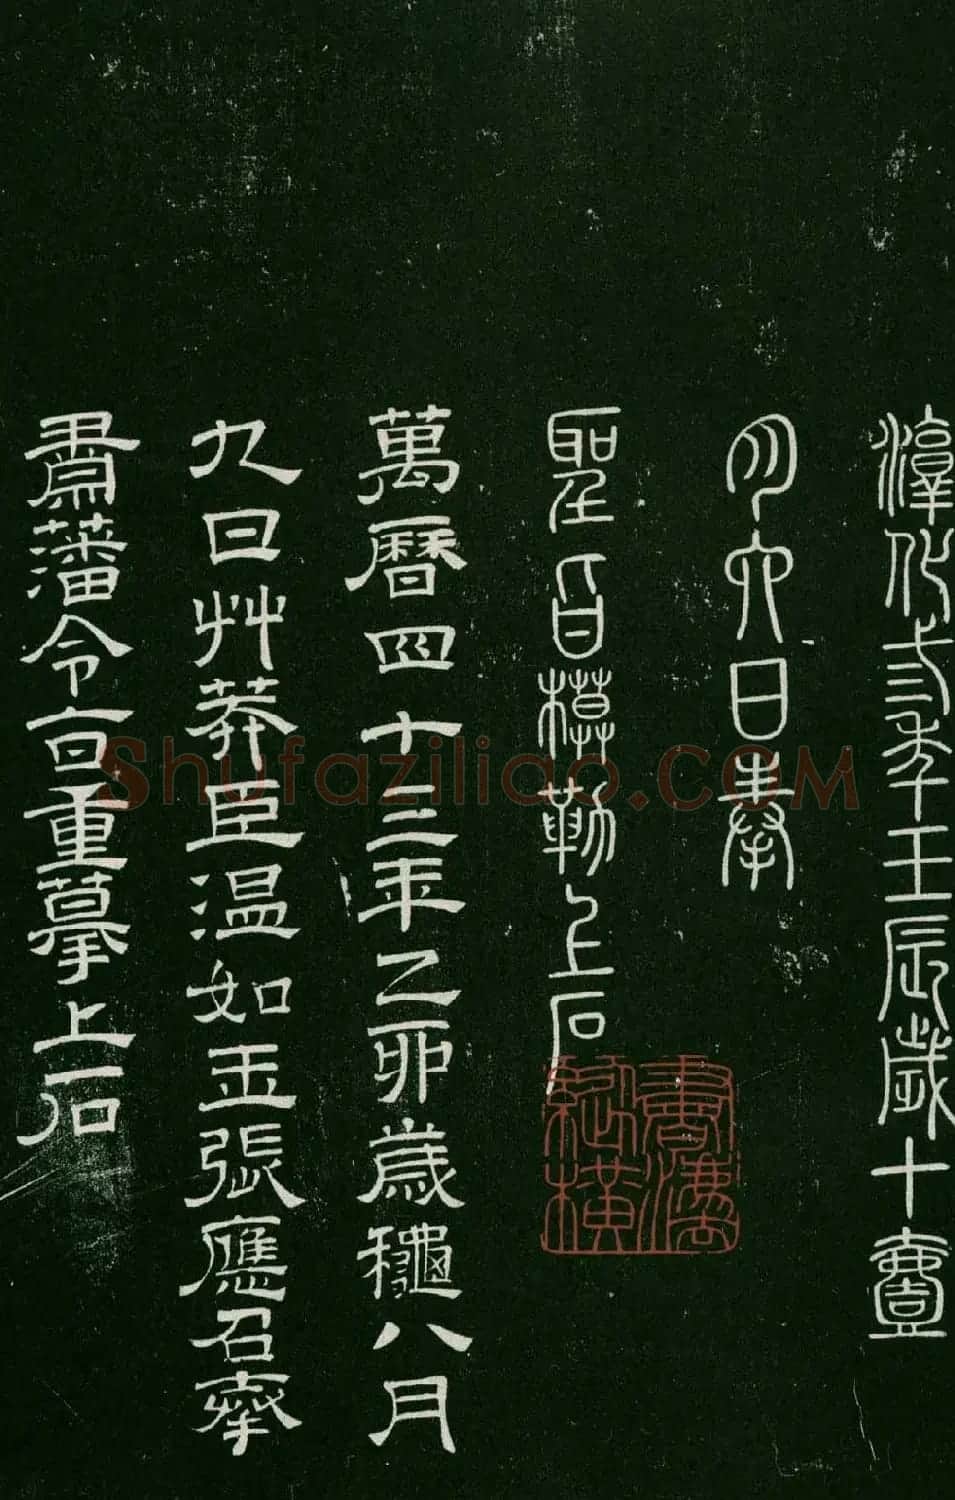 淳化三年壬辰歲十壹
月六日奉
聖旨模勒上石
萬曆四十三年乙卯歲龝八月
九日艸莽臣温如玉張應召奉
肅藩令旨重摹上石
Shufaziliao.COM